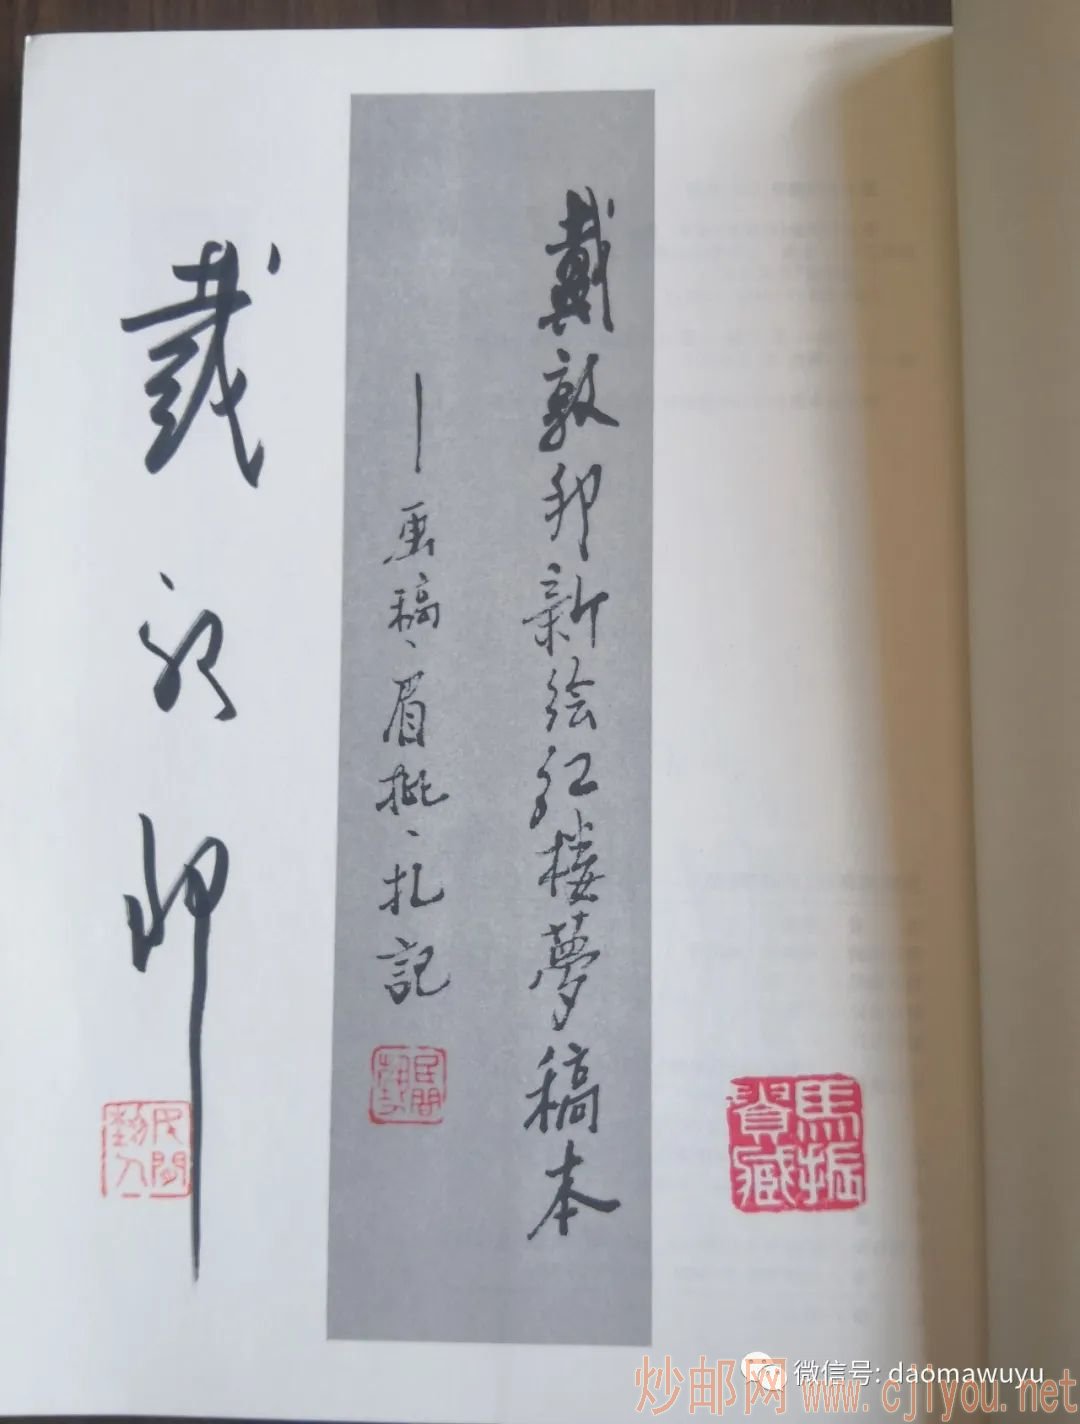 戴敦邦新绘红楼夢稿本
—画稿、眉批、扎記
民間
戴敦邦
民間藝人
馬振資藏
微信号: daomawuyu
炒邮网 www.cjiyou.net